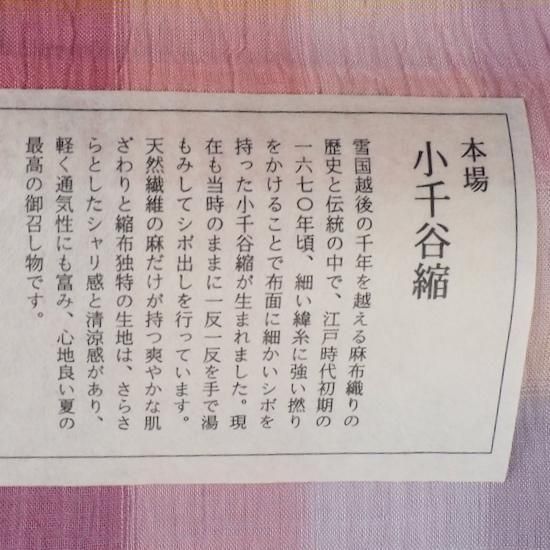 本場
小千谷縮
雪国越後の千年を越える麻布織りの
歴史と伝統の中で、江戸時代初期の
一六七〇年頃、細い緯糸に強い撚り
をかけることで布面に細かいシボを
持った小千谷縮が生まれました。現
在も当時のままに一反一反を手で湯
もみしてシボ出しを行っています。
天然繊維の麻だけが持つ爽やかな肌
ざわりと縮布独特の生地は、さらさ
らとしたシャリ感と清涼感があり、
軽く通気性にも富み、心地良い夏の
最高の御召し物です。